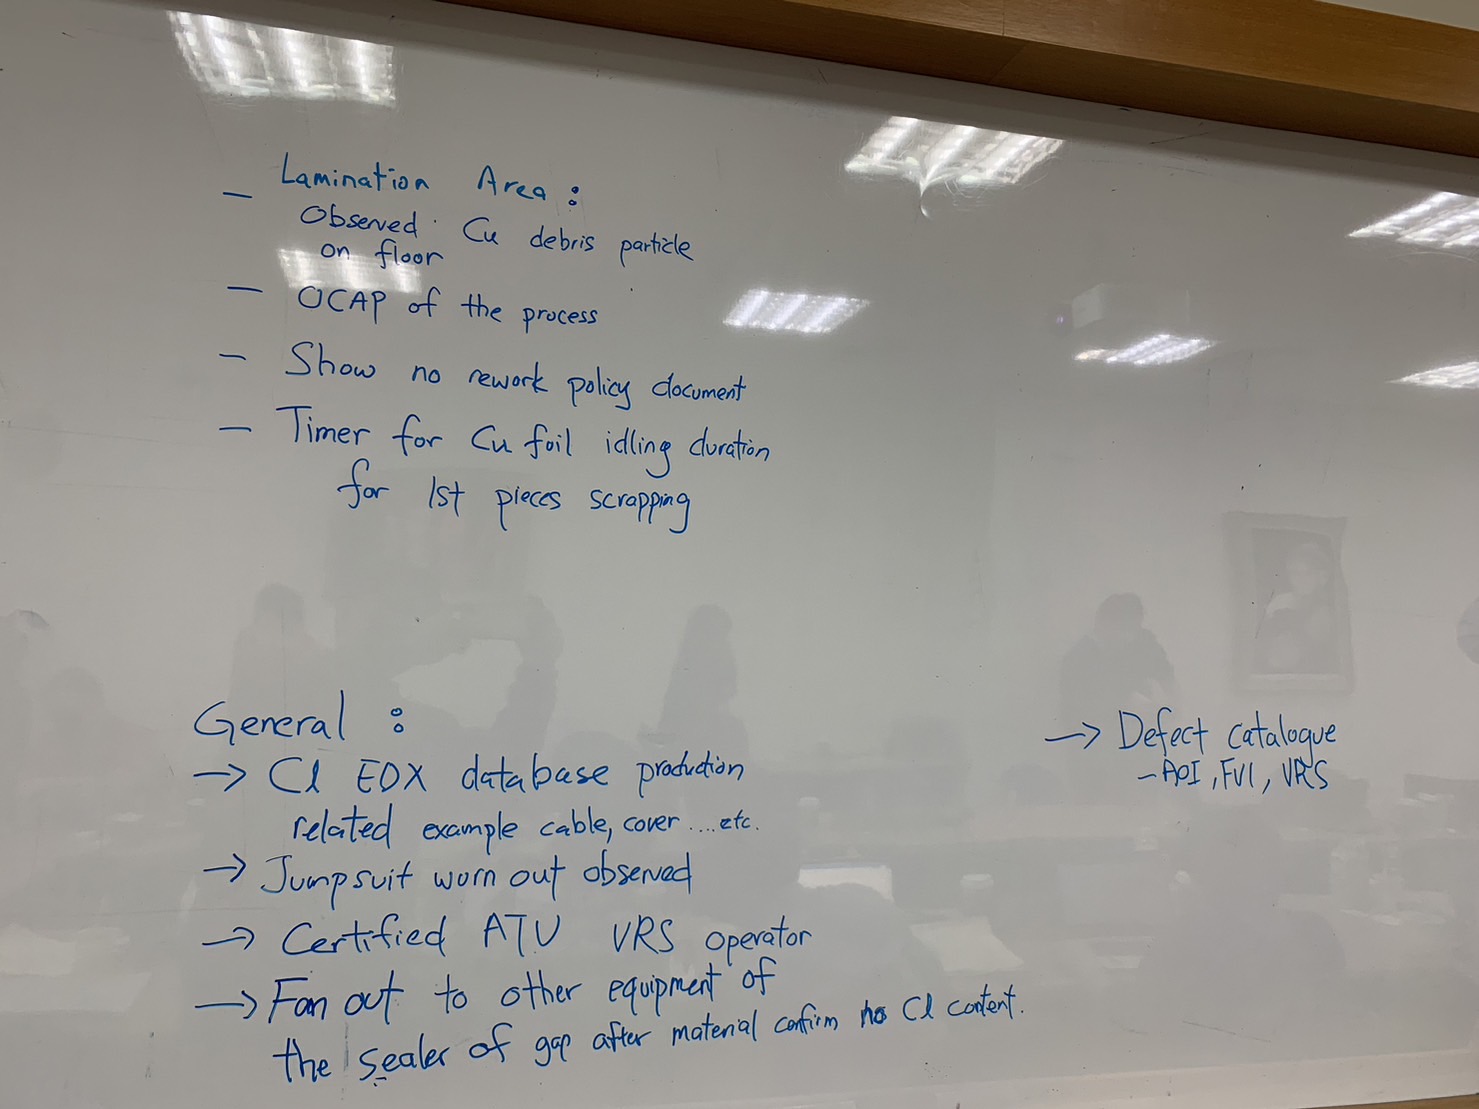 Lamination Area :
- Observed Cu debris particle
on floor
- OCAP of the process
- Show no rework policy document
- Timer for Cu foil idling duration
for 1st pieces scrapping
General :
→ Cl EDX database production
related example cable, cover .... etc.
→ Jumpsuit worn out observed
→ Certified ATU VRS operator
→ Fan out to other equipment of
the sealer of gap after material confirm no Cl content.
→ Defect catalogue
- AOI, FVI, VRS